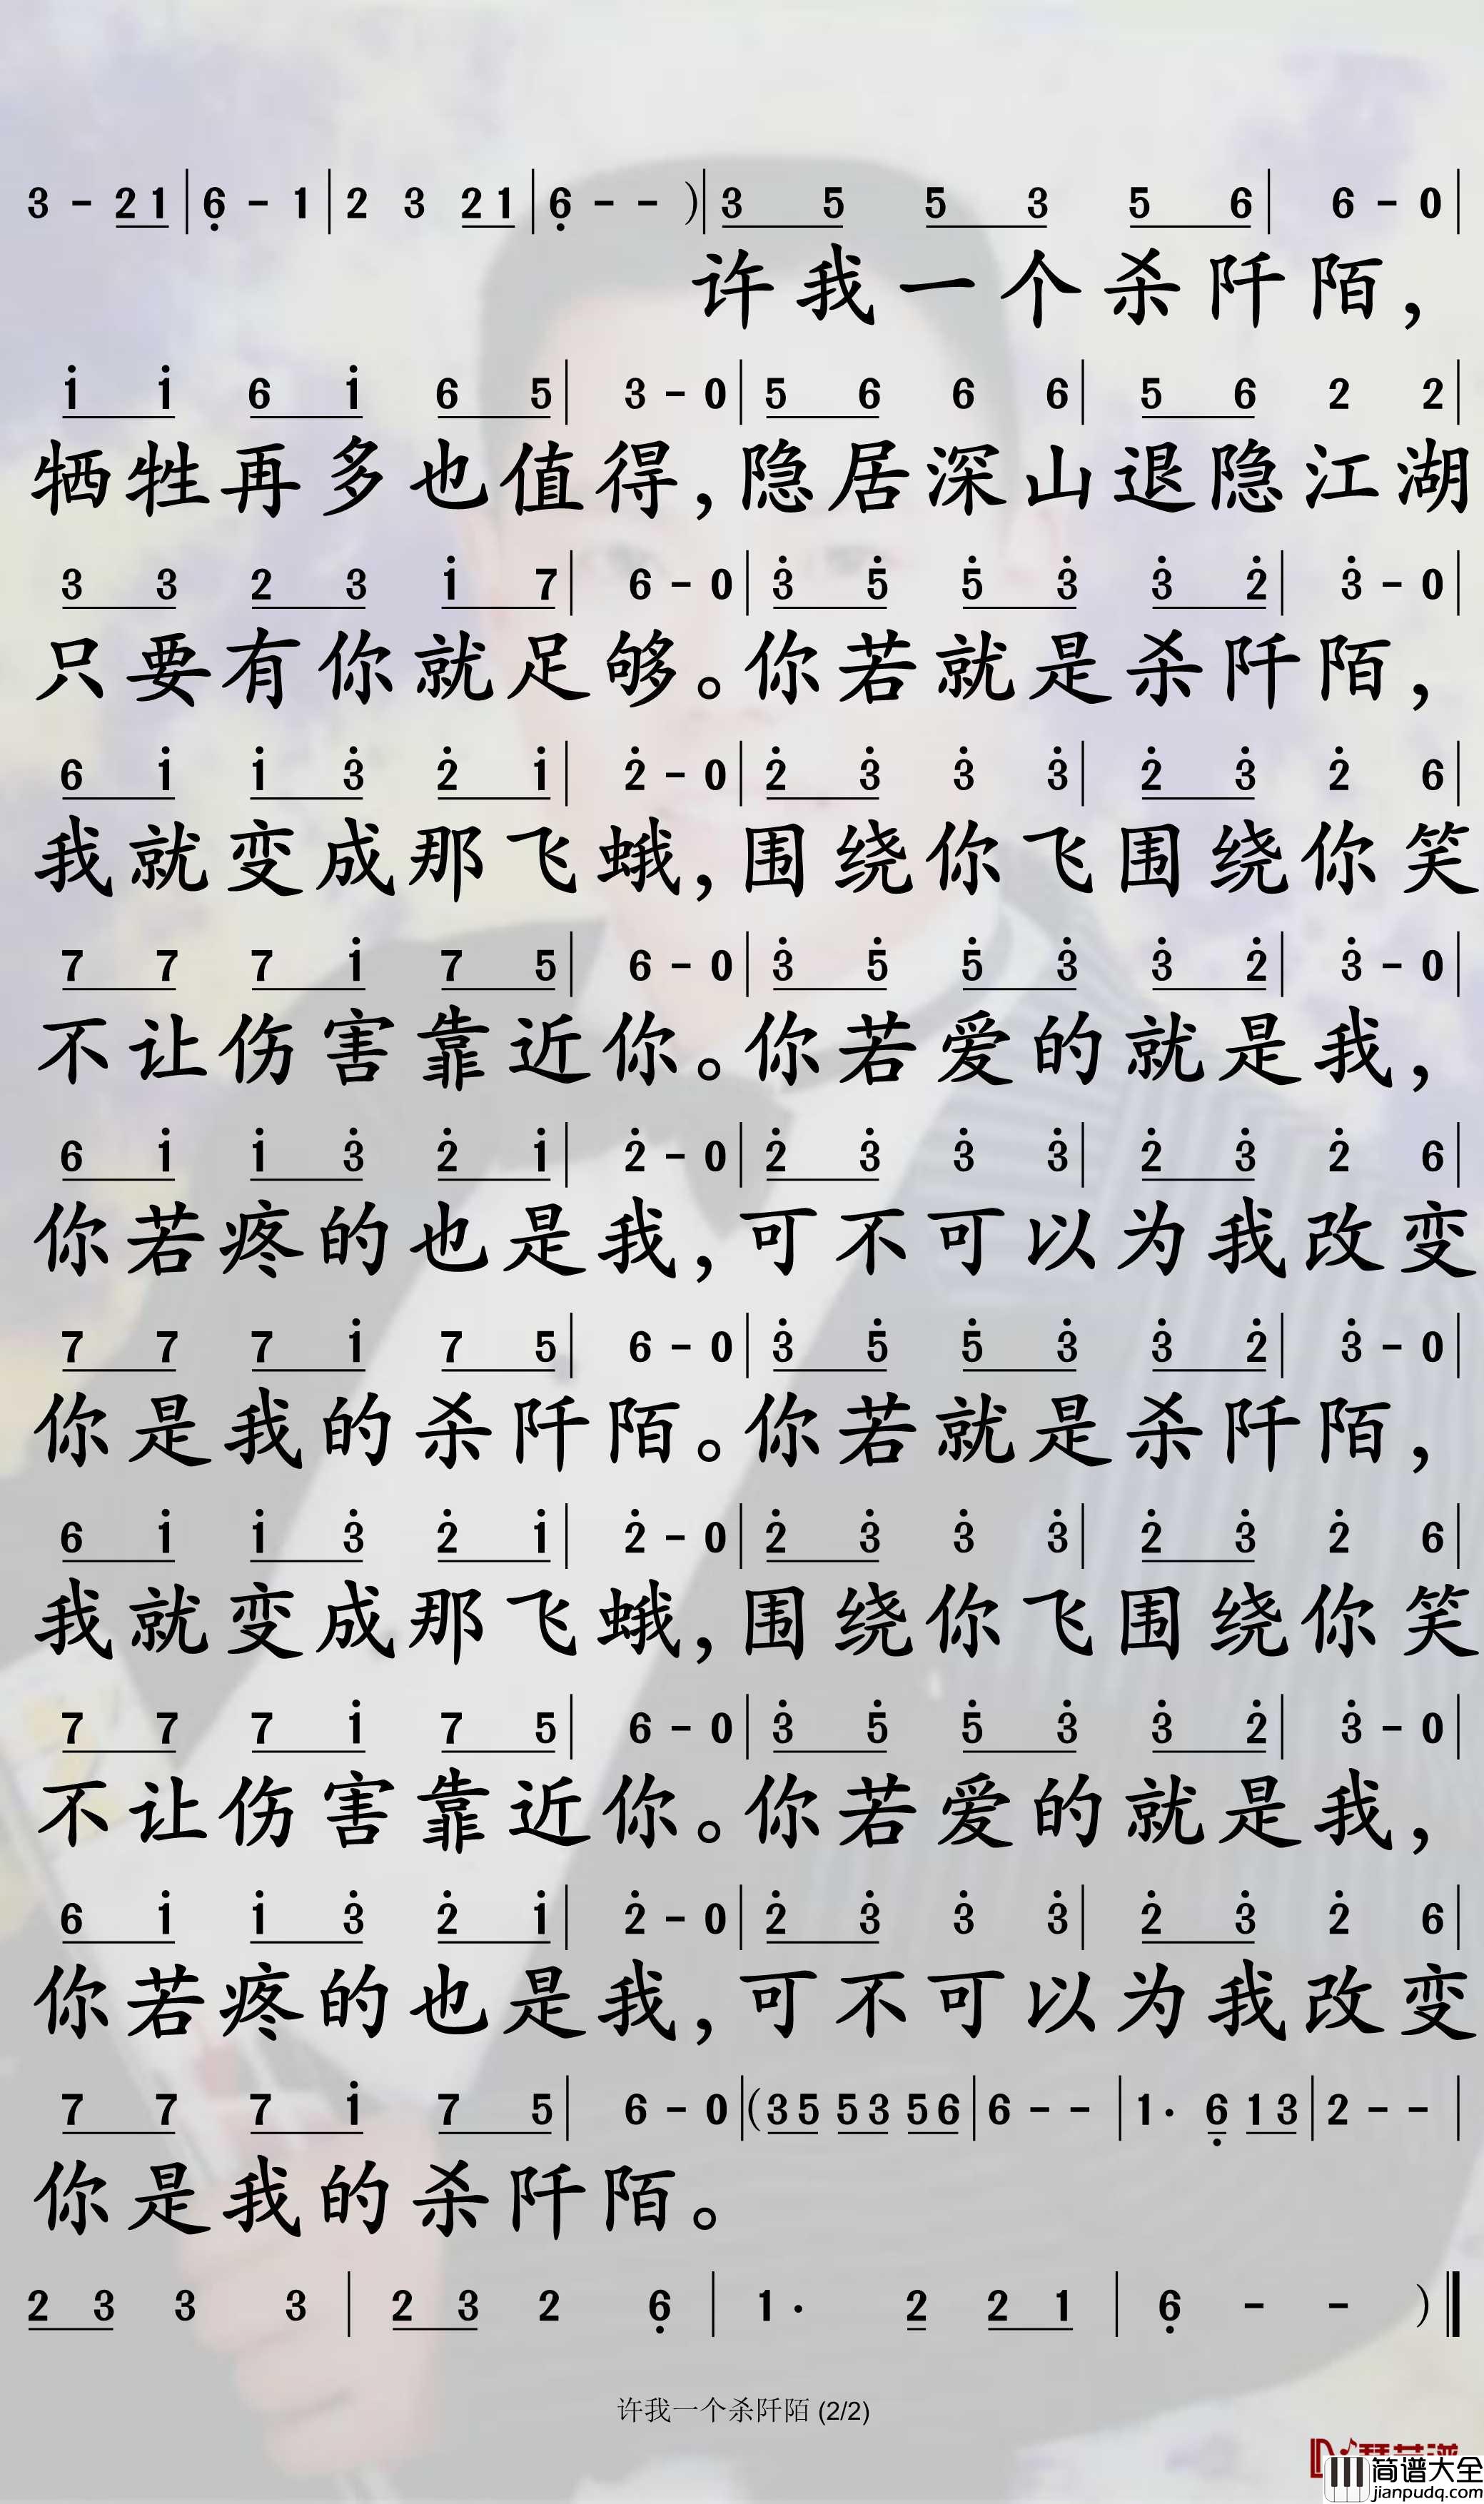 3 - 2 1 | 6̣ - 1 | 2 3 2 1 | 6̣ - - ) | 3 5 5 3 5 6 | 6 - 0 |
许我一个杀阡陌，
1̇ 1̇ 6 1̇ 6 5 | 3 - 0 | 5 6 6 6 | 5 6 2 2 |
牺牲再多也值得，隐居深山退隐江湖
3 3 2 3 1̇ 7 | 6 - 0 | 3̇ 5̇ 5̇ 3̇ 3̇ 2̇ | 3̇ - 0 |
只要有你就足够。你若就是杀阡陌，
6 1̇ 1̇ 3̇ 2̇ 1̇ | 2̇ - 0 | 2̇ 3̇ 3̇ 3̇ | 2̇ 3̇ 2̇ 6 |
我就变成那飞蛾，围绕你飞围绕你笑
7 7 7 1̇ 7 5 | 6 - 0 | 3̇ 5̇ 5̇ 3̇ 3̇ 2̇ | 3̇ - 0 |
不让伤害靠近你。你若爱的就是我，
6 1̇ 1̇ 3̇ 2̇ 1̇ | 2̇ - 0 | 2̇ 3̇ 3̇ 3̇ | 2̇ 3̇ 2̇ 6 |
你若疼的也是我，可不可以为我改变
7 7 7 1̇ 7 5 | 6 - 0 | 3̇ 5̇ 5̇ 3̇ 3̇ 2̇ | 3̇ - 0 |
你是我的杀阡陌。你若就是杀阡陌，
6 1̇ 1̇ 3̇ 2̇ 1̇ | 2̇ - 0 | 2̇ 3̇ 3̇ 3̇ | 2̇ 3̇ 2̇ 6 |
我就变成那飞蛾，围绕你飞围绕你笑
7 7 7 1̇ 7 5 | 6 - 0 | 3̇ 5̇ 5̇ 3̇ 3̇ 2̇ | 3̇ - 0 |
不让伤害靠近你。你若爱的就是我，
6 1̇ 1̇ 3̇ 2̇ 1̇ | 2̇ - 0 | 2̇ 3̇ 3̇ 3̇ | 2̇ 3̇ 2̇ 6 |
你若疼的也是我，可不可以为我改变
7 7 7 1̇ 7 5 | 6 - 0 | ( 3 5 5 3 5 6 | 6 - - | 1 · 6̣ 1 3 | 2 - - |
你是我的杀阡陌。
2 3 3 3 | 2 3 2 6̣ | 1 · 2 2 1 | 6̣ - - ) ‖
许我一个杀阡陌 (2/2)
简谱大全
jianpudq.com